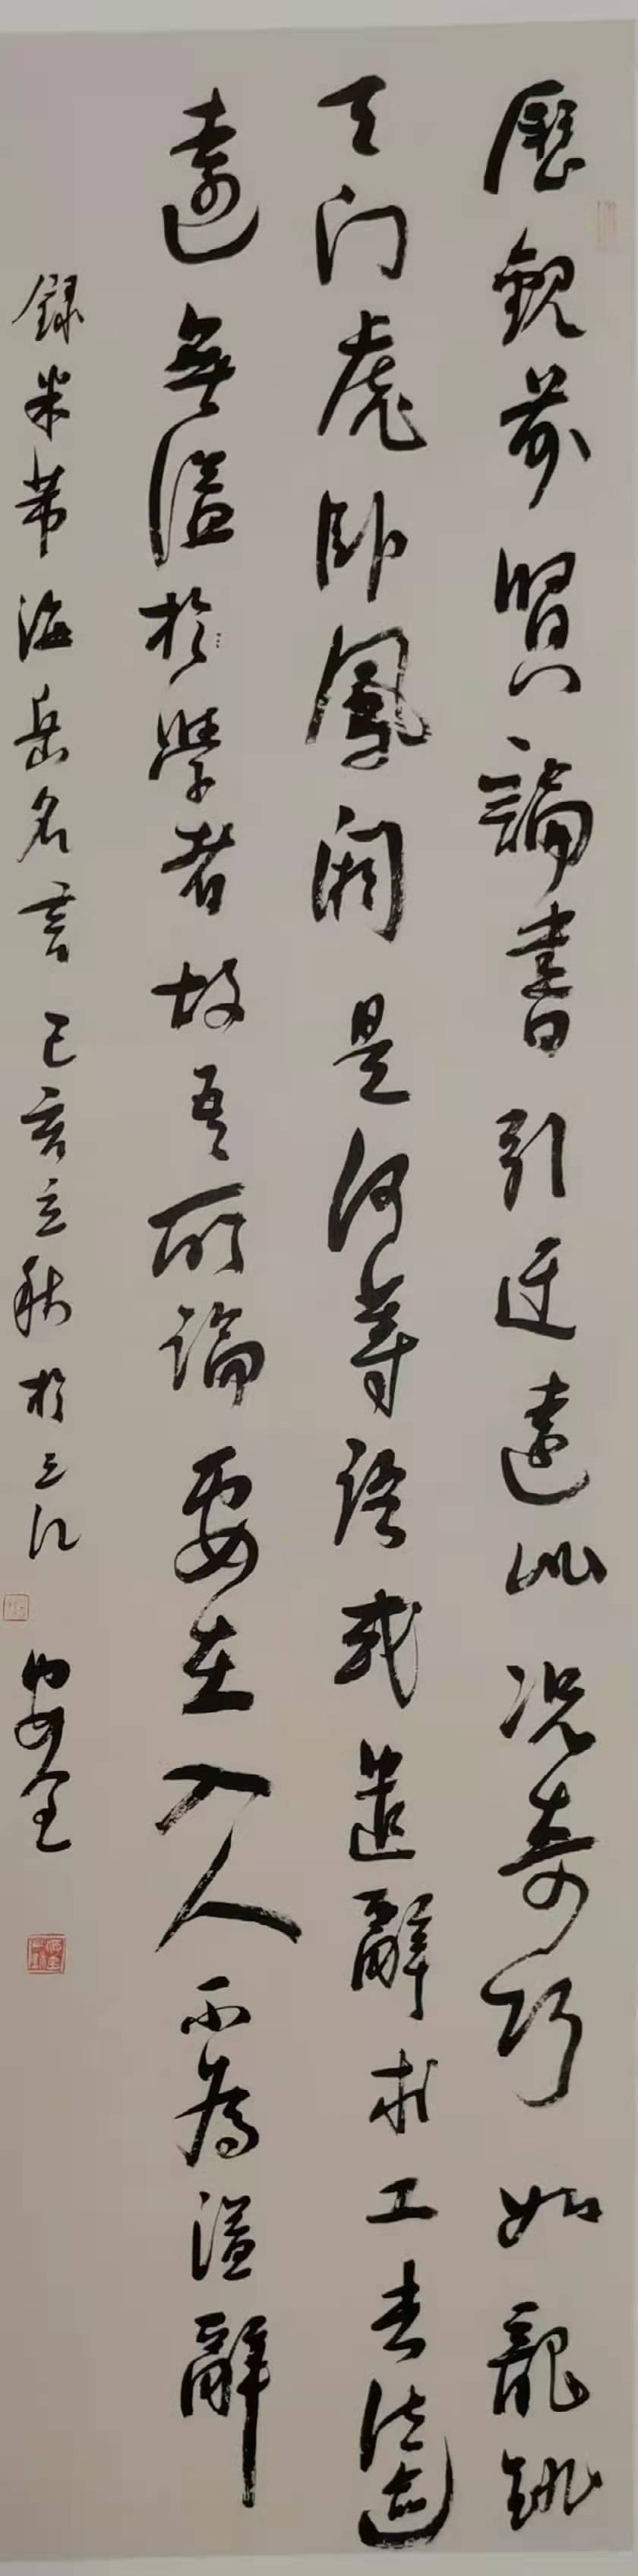 歷觀前賢論書引迂遠比况奇巧如龍跳
天门虎卧鳳闕是何等語或遣辭求工去法逾
遠無益於學者故吾所論要在入人不為溢辭
録米芾海岳名言己亥立秋於三江 安全